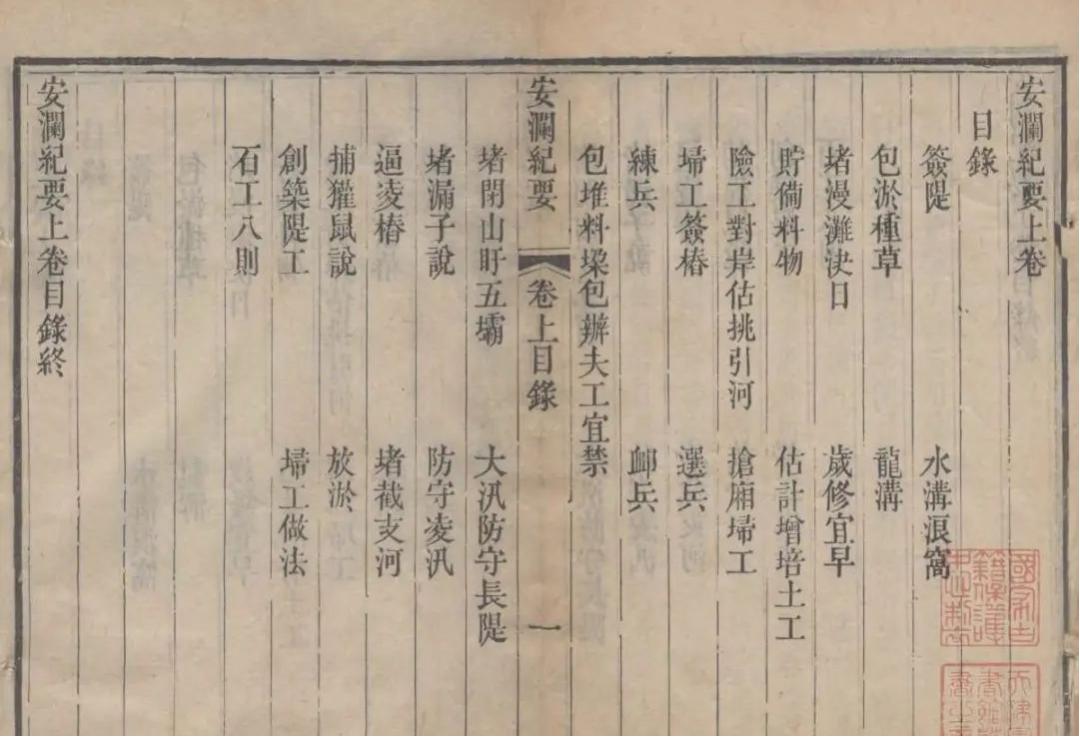 安瀾紀要上卷
目錄
簽隄 水溝浪窩
包淤種草 龍溝
堵漫灘決口 歲修宜早
貯備料物 估計增培土工
險工對岸估挑引河 搶廂埽工
埽工簽樁 選兵
練兵 卹兵
包堆料垜包辦夫工宜禁
安瀾紀要 卷上目錄 一
堵閉山盱五壩 大汛防守長隄
堵漏子說 防守凌汛
逼凌樁 堵截支河
捕獾鼠說 放淤
創築隄工 埽工做法
石工八則
安瀾紀要上卷目錄終
國家古籍保護